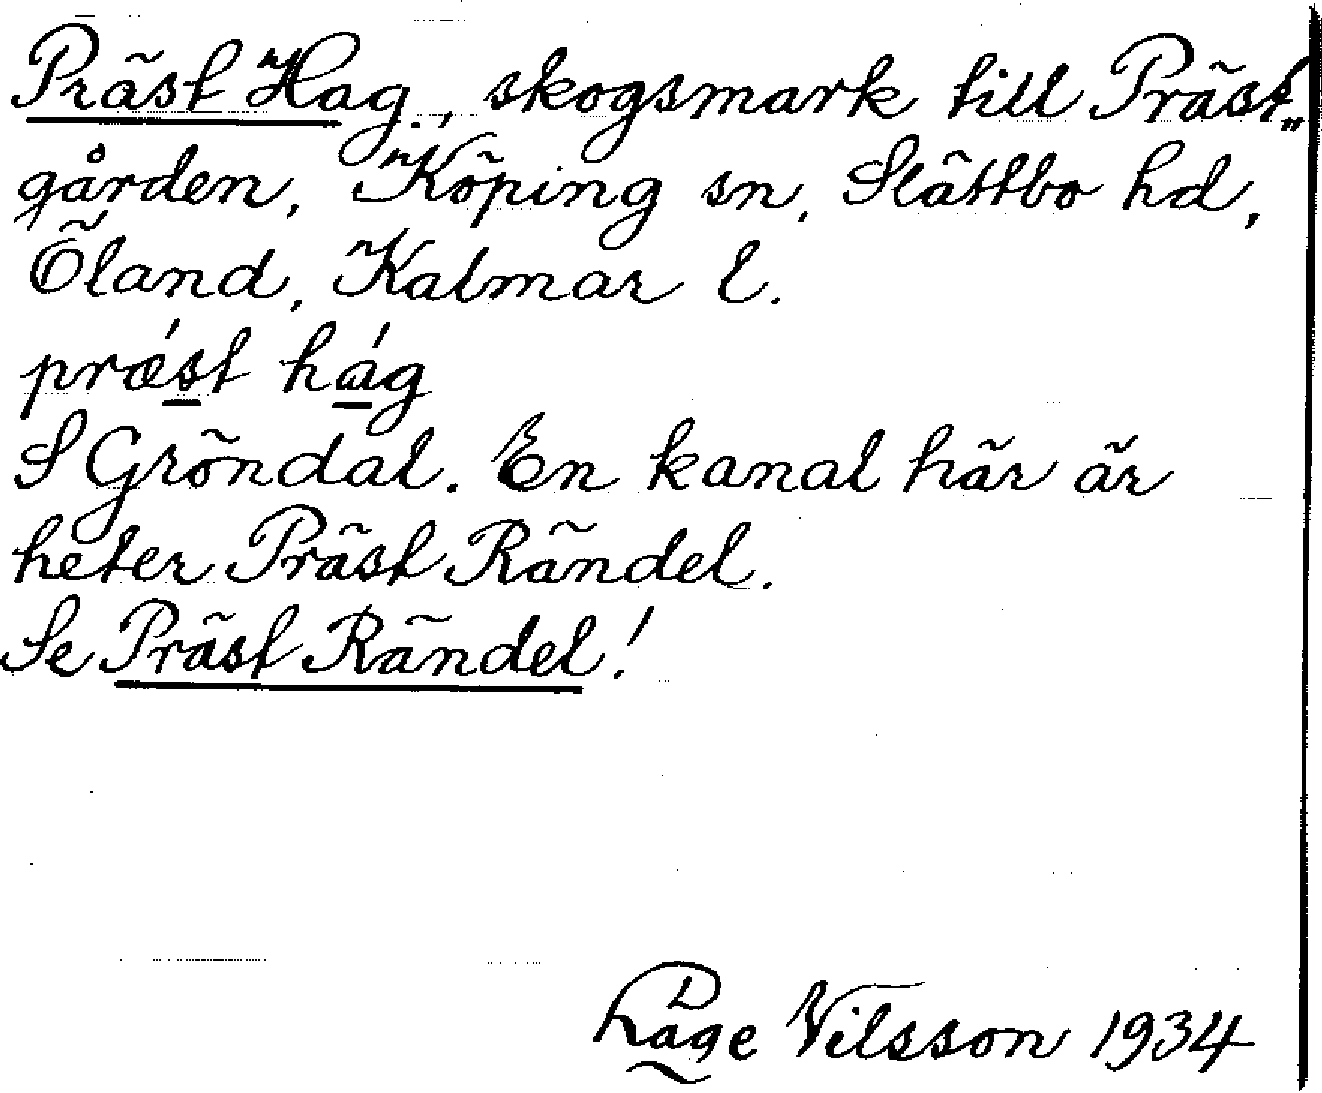 Präst Hag., skogsmark till Präst„
gården, Köping sn, Slättbo hd,
Öland, Kalmar l.
prǽst hág
S Gröndal. En kanal här är
heter Präst Rändel.
Se Präst Rändel!
Åge Nilsson 1934